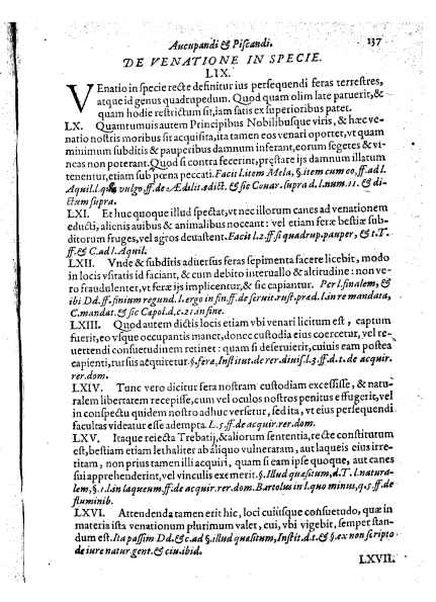 Aucupandi & Piscandi. 137
DE VENATIONE IN SPECIE.
LIX.
VEnatio in specie recte definitur ius persequendi feras terrestres,
atque id genus quadrupedum. Quod quam olim late patuerit, &
quam hodie restrictum sit, iam satis ex superioribus patet.
LX. Quamtumuis autem Principibus Nobilibusque viris, & hæc ve-
natio nostris moribus sit acquisita, ita tamen eos venari oportet, vt quam
minimum subditis & pauperibus damnum inferant, eorum segetes & vi-
neas non poterant. Quod si contra fecerint, præstare ijs damnum illatum
tenentur, etiam sub pœna peccati. Facit l. item Mela, § item cum eo, ff. ad l.
Aquil. l. q vulgo ff. de Ædilit. ædict. & sic Couar. supra d. l. num. 11. & di-
ctum supra.
LXI. Et huc quoque illud spectat, vt nec illorum canes ad venationem
educti, alienis auibus & animalibus noceant: vel etiam feræ bestiæ sub-
ditorum fruges, vel agros deuastent. Facit l. 2. ff. si quadrup. pauper, & t. T.
ff. & C. ad l. Aquil.
LXII. Vnde & subditis aduersus feras sepimenta facere licebit, modo
in locis vsitatis id faciant, & cum debito interuallo & altitudine: non ve-
ro fraudulenter, vt feræ ijs implicentur, & sic capiantur. Per l. finalem, &
ibi Dd. ff. finium regund. l. ergo in fin. ff. de seruit. rust. præd. l. in re mandata,
C. mandat. & sic Capol. d. c. 21. in fine.
LXIII. Quod autem dictis locis etiam vbi venari licitum est, captum
fuerit, eo vsque occupantis manet, donec custodia eius coercetur, vel re-
uertendi consuetudinem retinet: quam si deseruierit, cuiuis eam postea
capienti, rursus acquiretur. §. fera, Institut. de rer. diuis. l. 3. ff. d. t. de acquir.
rer. dom.
LXIV. Tunc vero dicitur fera nostram custodiam excessisse, & natu-
ralem libertatem recepisse, cum vel oculos nostros penitus effugerit, vel
in conspectu quidem nostro adhuc versetur, sed ita, vt eius persequendi
facultas videatur esse adempta. L. 5. ff. de acquir. rer. dom.
LXV. Itaque reiecta Trebatij, & aliorum sententia, recte constitutum
est, bestiam etiam lethaliter ab aliquo vulneratam, aut laqueis eius irre-
titam, non prius tamen illi acquiri, quam si eam ipse quoque, aut canes
sui apprehenderint, vel vinculis exemerit. §. Illud quæsitum, d. T. l. natura-
lem, §. 1. l. in laqueum. ff. de acquir. rer. dom. Bartolus in l. quo minus, q. 5. ff. de
fluminib.
LXVI. Attendenda tamen erit hic, loci cuiusque consuetudo, quæ in
materia ista venationum plurimum valet, cui, vbi vigebit, semper stan-
dum est. Ita passim Dd. & c. ad §. illud quæsitum, Instit. d. t. & §. ex non scripto
de iure natur. gent. & ciu. ibid.
LXVII.